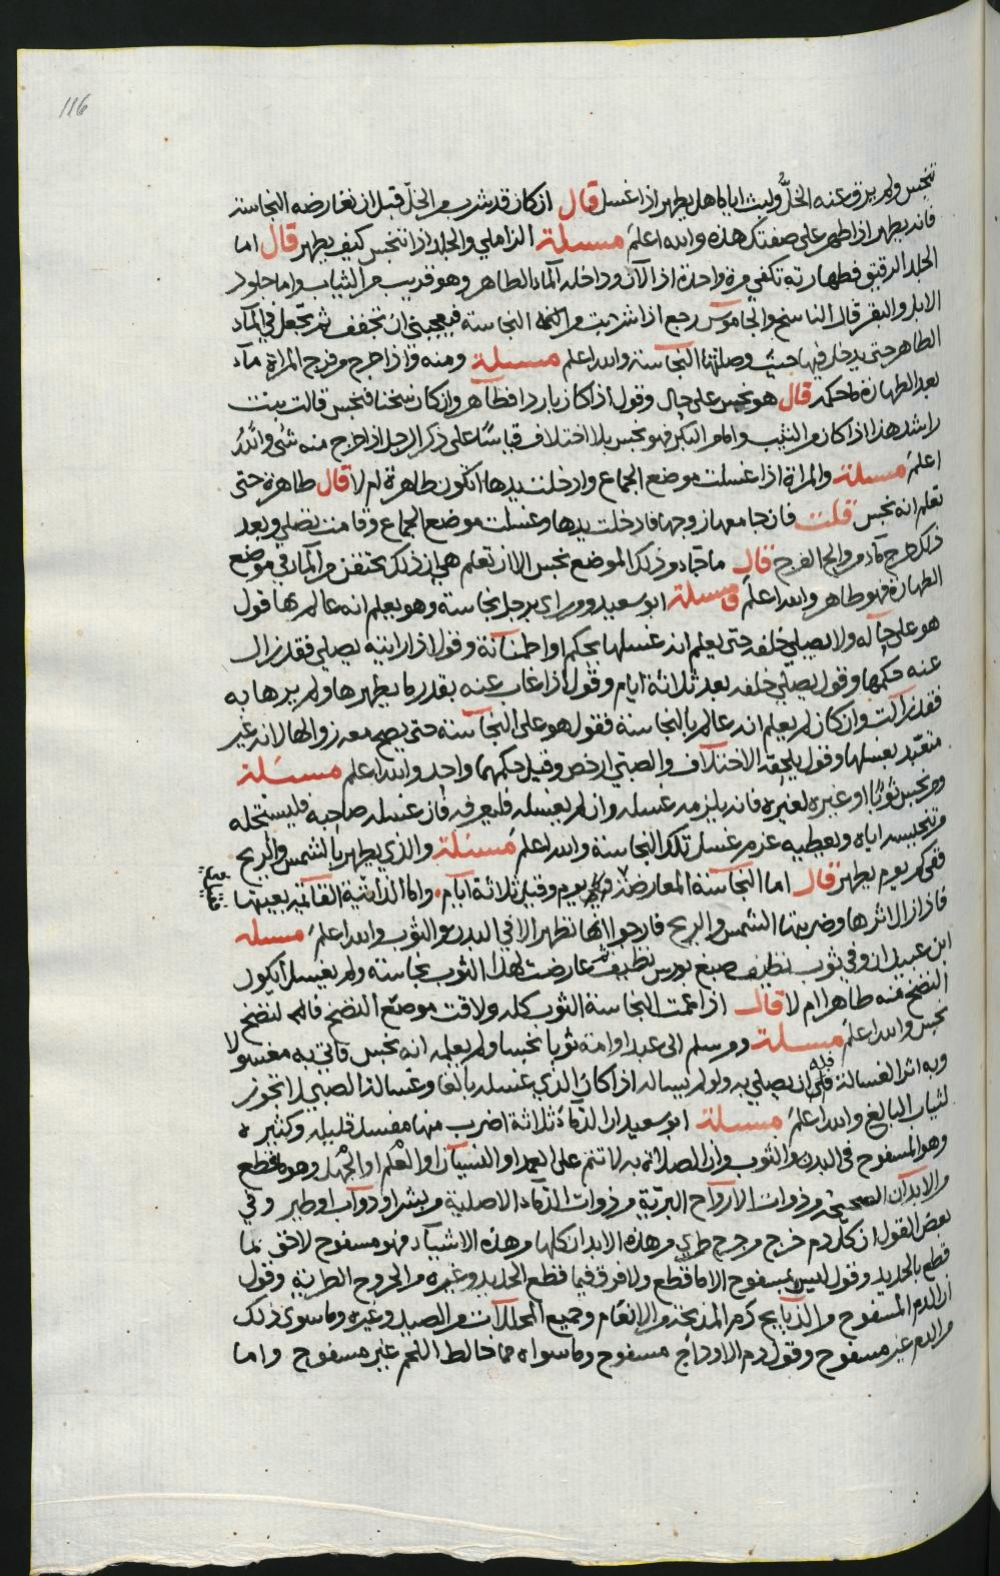 116
تنجس ولم يرق عنه الخل ولبث اياما هل يطهر اذا غسل قال ان كان قد شرب من الخل قبل ان تعارضه النجاسة
فانه يطهر اذا طهر على صفتك هذه والله اعلم مسئلة الزاملي والجلد اذا تنجس كيف يطهر قال اما
الجلد الرقيق فطهارته تكفي مرة واحدة اذا لان وداخله الماء الطاهر وهو قريب من الثياب واما جلود
الابل والبقر قال الناسخ والجاموس رجع اذا شربت من النجاسة فيعجبني ان تجفف ثم تجعل في الماء
الطاهر حتى يدخل فيها حيث وصلتها النجاسة والله اعلم مسئلة ومنه واذا خرج من فرج المراة ماء
بعد الطهارة ما حكمه قال هو نجس على حال وقول اذا كان باردا فطاهر وان كان سخنا فنجس قالت بنت
راشد هذا اذا كان من الثيب واما من البكر فهو نجس بلا اختلاف قياسا على ذكر الرجل اذا خرج منه شئ والله
اعلم مسئلة والمراة اذا غسلت موضع الجماع وادخلت يدها اتكون طاهرة ام لا قال طاهرة حتى
تعلم انه نجس قلت فان جامعها زوجها فادخلت يدها وغسلت موضع الجماع وقامت تصلي وبعد
ذلك خرج ماء من والج الفرج قال ما جاء من ذلك الموضع نجس الا ان تعلم هي ان ذلك يحتقن من الماء في موضع
الطهارة فهو طاهر والله اعلم مسئلة ابو سعيد ومن راى برجل نجاسة وهو يعلم انه عالم بها فقول
هو على حاله ولا يصلي خلفه حتى يعلم انه غسلها بحكم او اطمئنانة وقول اذا رايته يصلي فقد زال
عنه حكمها وقول يصلي خلفه بعد ثلاثة ايام وقول اذا غاب عنه بقدر ما يطهرها ولم يرها به
فقد زالت وان كان لم يعلم انه عالم بالنجاسة فقول هو على النجاسة حتى يصح معه زوالها لانه غير
متعبد بغسلها وقول يلحقه الاختلاف والصبي ارخص وقيل حكمهما واحد والله اعلم مسئلة
ومن نجس ثوبا او غيره لغيره فانه يلزمه غسله وان لم يغسله فليعرفه فان غسله صاحبه فليستحله
من تنجيسه اياه ويعطيه عزم غسل تلك النجاسة والله اعلم مسئلة والذي يطهر بالشمس والريح
ففي كم يوم يطهر قال اما النجاسة المعارضة ففي يوم وقيل ثلاثة ايام واما الذاتية القائمة بعينها
فاذا زال اثرها وضربتها الشمس والريح فارجوا انها تطهر الا في البدن والثوب والله اعلم مسئلة
ابن عبيدان وفي ثوب نظيف صبغ بورس نظيف ثم عارضت لهذا الثوب نجاسة ولم يغسل ايكون
النضخ منه طاهرا ام لا قال اذا عمت النجاسة الثوب كله ولاقت موضع النضخ فالنضخ
نجس والله اعلم مسئلة ومن سلم الى عبد او امة ثوبا نجسا ولم يعلمه انه نجس فاتى به مغسولا
وبه اثر الغسالة فله ان يصلي به ولو لم يساله اذا كان الذي غسله بالغا وغسالة الصبي لا تجوز
لثياب البالغ والله اعلم مسئلة ابو سعيد ان الدماء ثلاثة اضرب منها مفسد قليله وكثيره
وهو المسفوح في البدن والثوب وان الصلاة به لا تتم على العمد او النسيان او العلم او الجهل وهو ما قطع
من الابدان الصحيحة من ذوات الارواح البرية من ذوات الدماء الاصلية من بشر او دواب او طير وفي
بعض القول ان كل دم خرج من جرح طري من هذه الابدان كلها من هذه الاشياء فهو مسفوح لاحق بما
قطع بالحديد وقول ليس بمسفوح الا ما قطع ولا فرق فيما قطع الحديد وغيره من الجروح الطرية وقول
ان الدم المسفوح من الذبايح دم المذبحة من الانعام وجميع المحللات من الصيد وغيره وما سوى ذلك
من الدم غير مسفوح وقول دم الاوداج مسفوح وما سواه مما خالط اللحم غير مسفوح واما